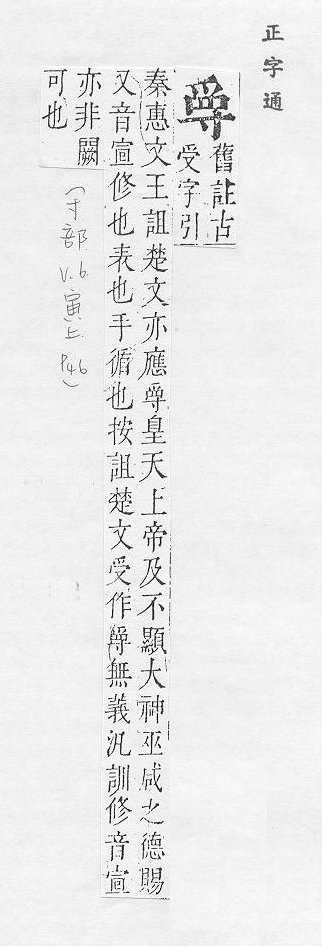 正字通
𤔌
舊註古
受字引
秦惠文王詛楚文亦應𤔌皇天上帝及不顯大神巫咸之德賜
又音宣修也表也手循也按詛楚文受作𤔌無義汎訓修音宣
亦非闕
可也
(寸部
V.6 寅上
P46)